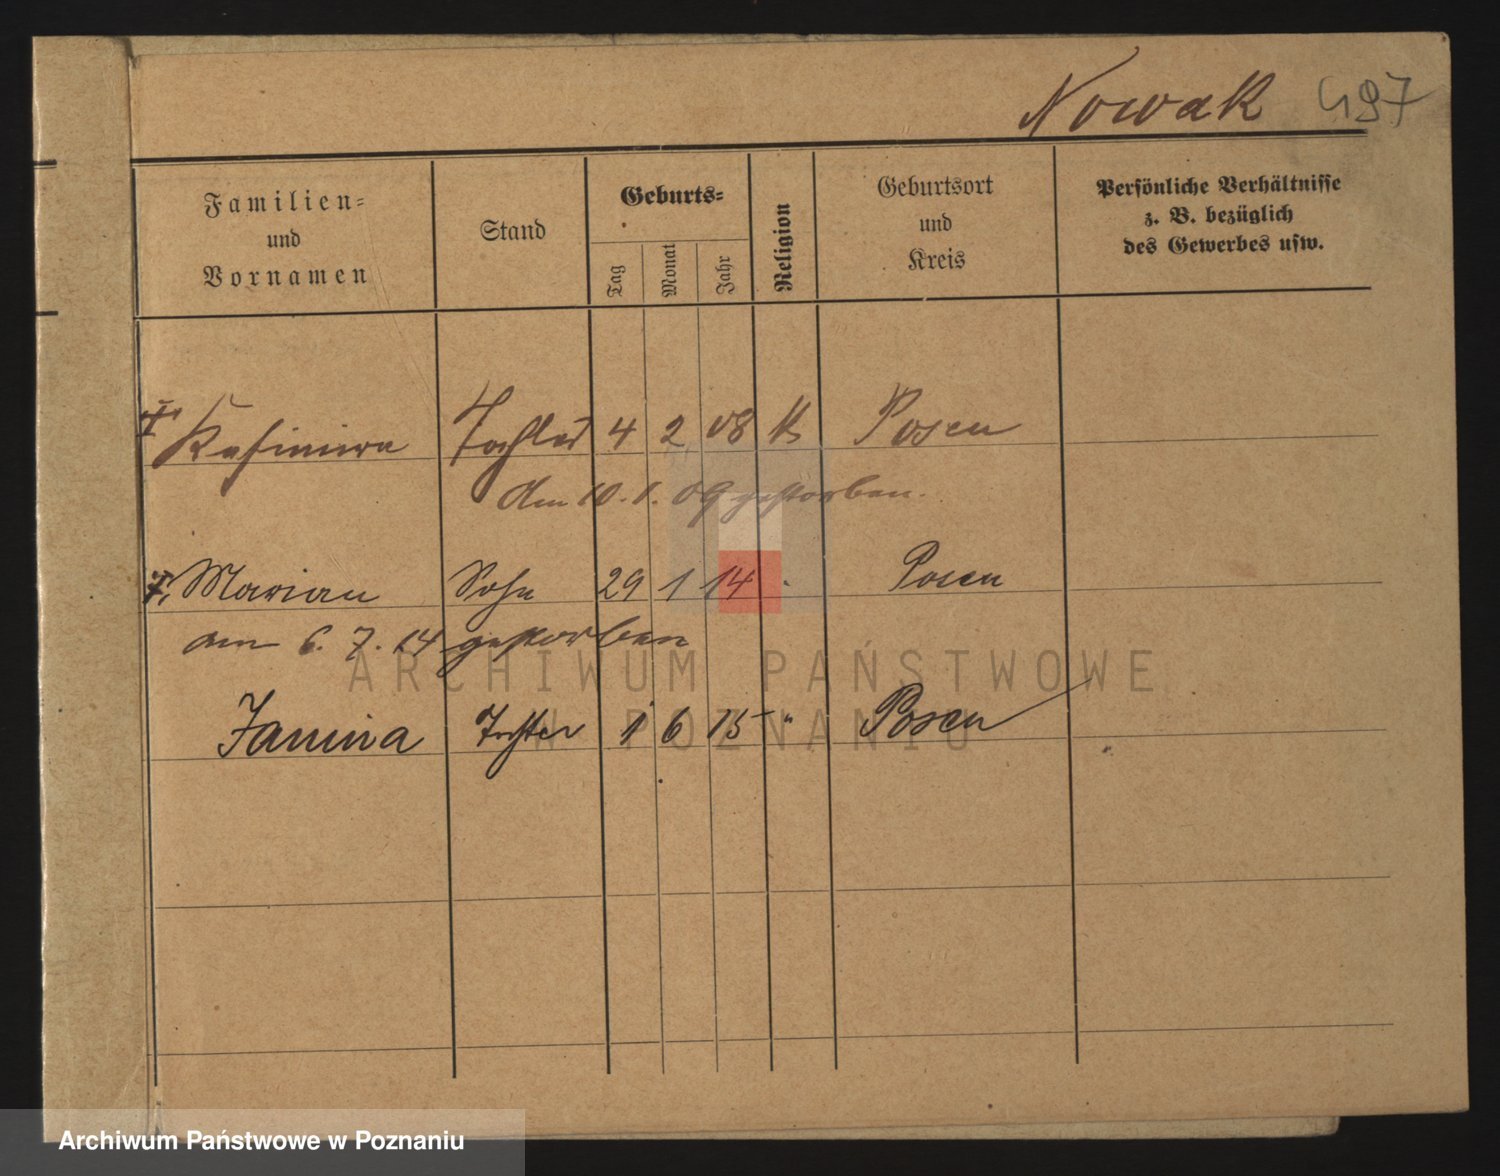 Nowak 497
Familien-
und
Vornamen
Stand
Geburts-
Tag
Monat
Jahr
Religion
Geburtsort
und
Kreis
Persönliche Verhältnisse
z. B. bezüglich
des Gewerbes usw.
Kasimira Tochter 4 2 08 K Posen
Am 10. 1. 09 gestorben.
Marian Sohn 29 1 14 " Posen
am 6. 7. 14 gestorben
Janina Tochter 1 6 15 " Posen
ARCHIWUM PAŃSTWOWE
W POZNANIU
Archiwum Państwowe w Poznaniu